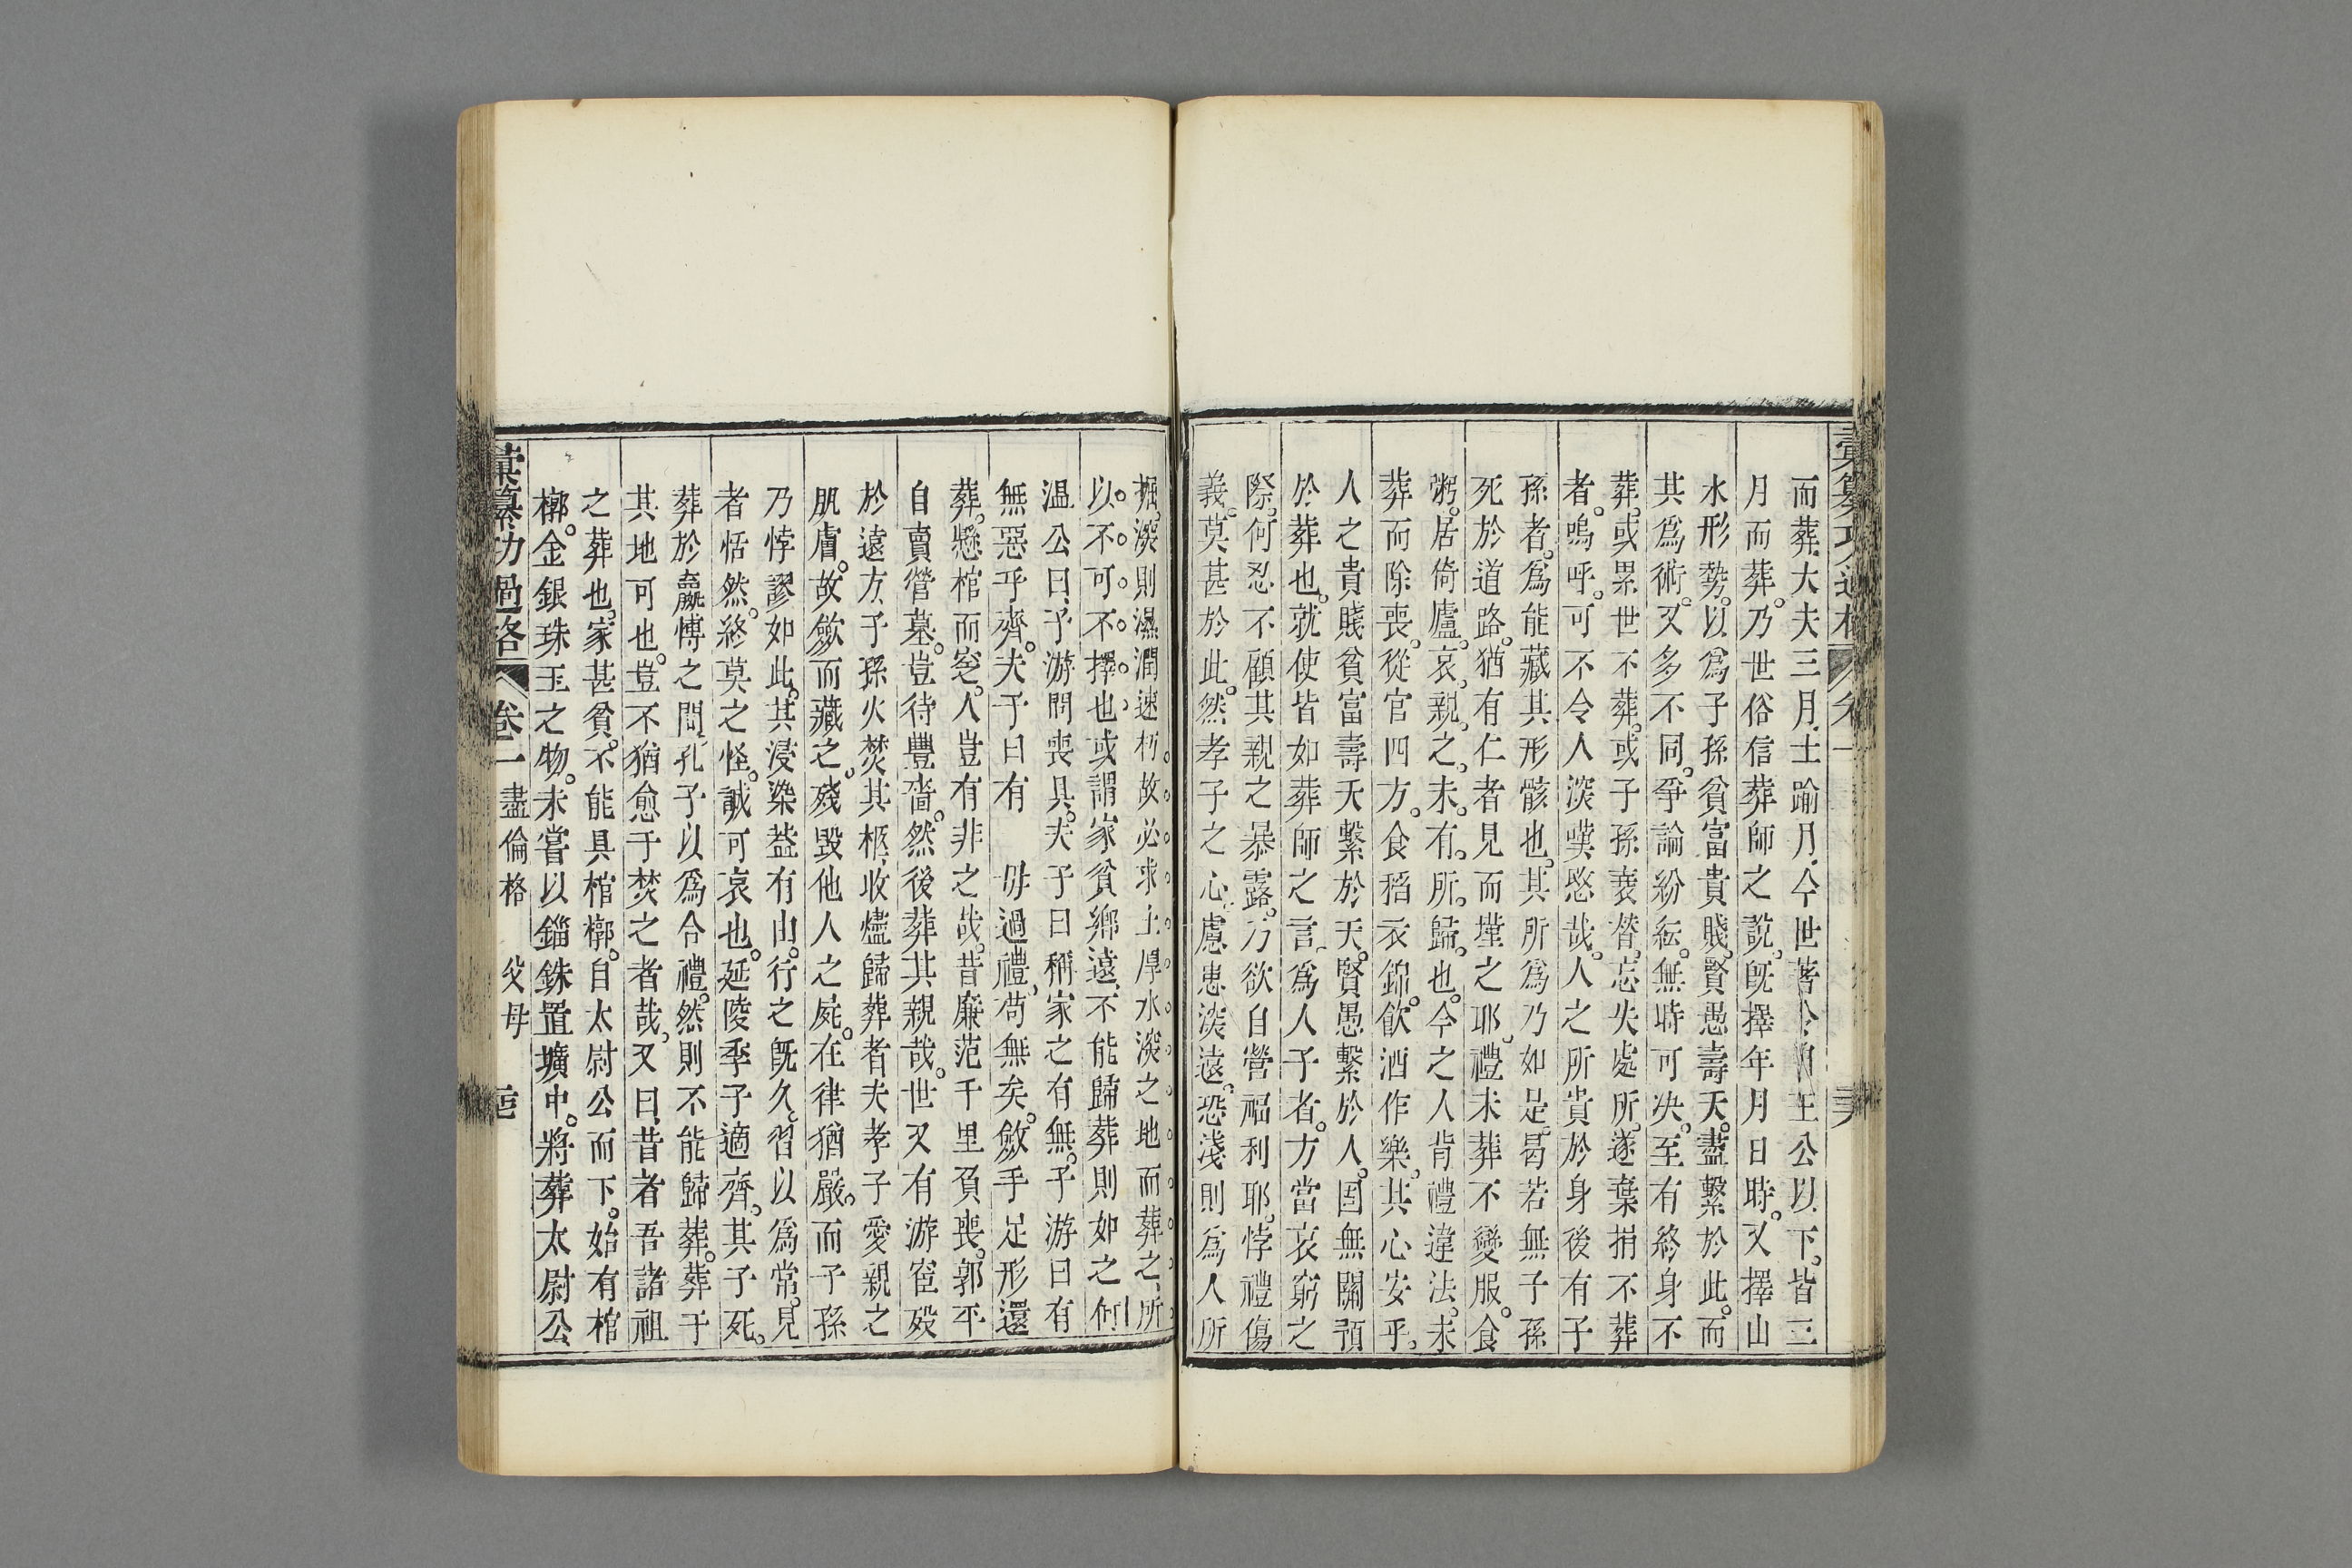 而葬大夫三月士踰月今世著令自王公以下皆三
月而葬乃世俗信葬師之說旣擇年月日時又擇山
水形勢以爲子孫貧富貴賤賢愚壽夭盡繫於此而
其爲術又多不同爭論紛紜無時可決至有終身不
葬或累世不葬或子孫衰替忘失處所遂棄捐不葬
者嗚呼可不令人深嘆愍哉人之所貴於身後有子
孫者爲能藏其形骸也其所爲乃如是曷若無子孫
死於道路猶有仁者見而墐之耶禮未葬不變服食
粥居倚廬哀親之未有所歸也今之人背禮違法未
葬而除喪從官四方食稻衣錦飮酒作樂其心安乎
人之貴賤貧富壽夭繫於天賢愚繫於人固無關預
於葬也就使皆如葬師之言爲人子者方當哀窮之
際何忍不顧其親之暴露乃欲自營福利耶悖禮傷
義莫甚於此然孝子之心慮患深遠恐淺則爲人所
掘深則濕潤速朽故必求土厚水深之地而葬之所
以不可不擇也或謂家貧鄉遠不能歸葬則如之何
溫公曰子游問喪具夫子曰稱家之有無子游曰有
無惡乎齊夫子曰有 毋過禮苟無矣斂手足形還
葬懸棺而窆人豈有非之哉昔廉范千里負喪郭平
自賣營墓豈待豐啬然後葬其親哉世又有游宦歿
於遠方子孫火焚其柩收燼歸葬者夫孝子愛親之
肌膚故斂而藏之殘毀他人之屍在律猶嚴而子孫
乃悖謬如此其浸染葢有由行之旣久習以爲常見
者恬然終莫之怪誠可哀也延陵季子適齊其子死
葬於嬴博之間孔子以爲合禮然則不能歸葬葬于
其地可也豈不猶愈于焚之者哉又曰昔者吾諸祖
之葬也家甚貧不能具棺槨自太尉公而下始有棺
槨金銀珠玉之物未嘗以錙銖置壙中將葬太尉公
彙纂功過格 卷一 盡倫格 父母